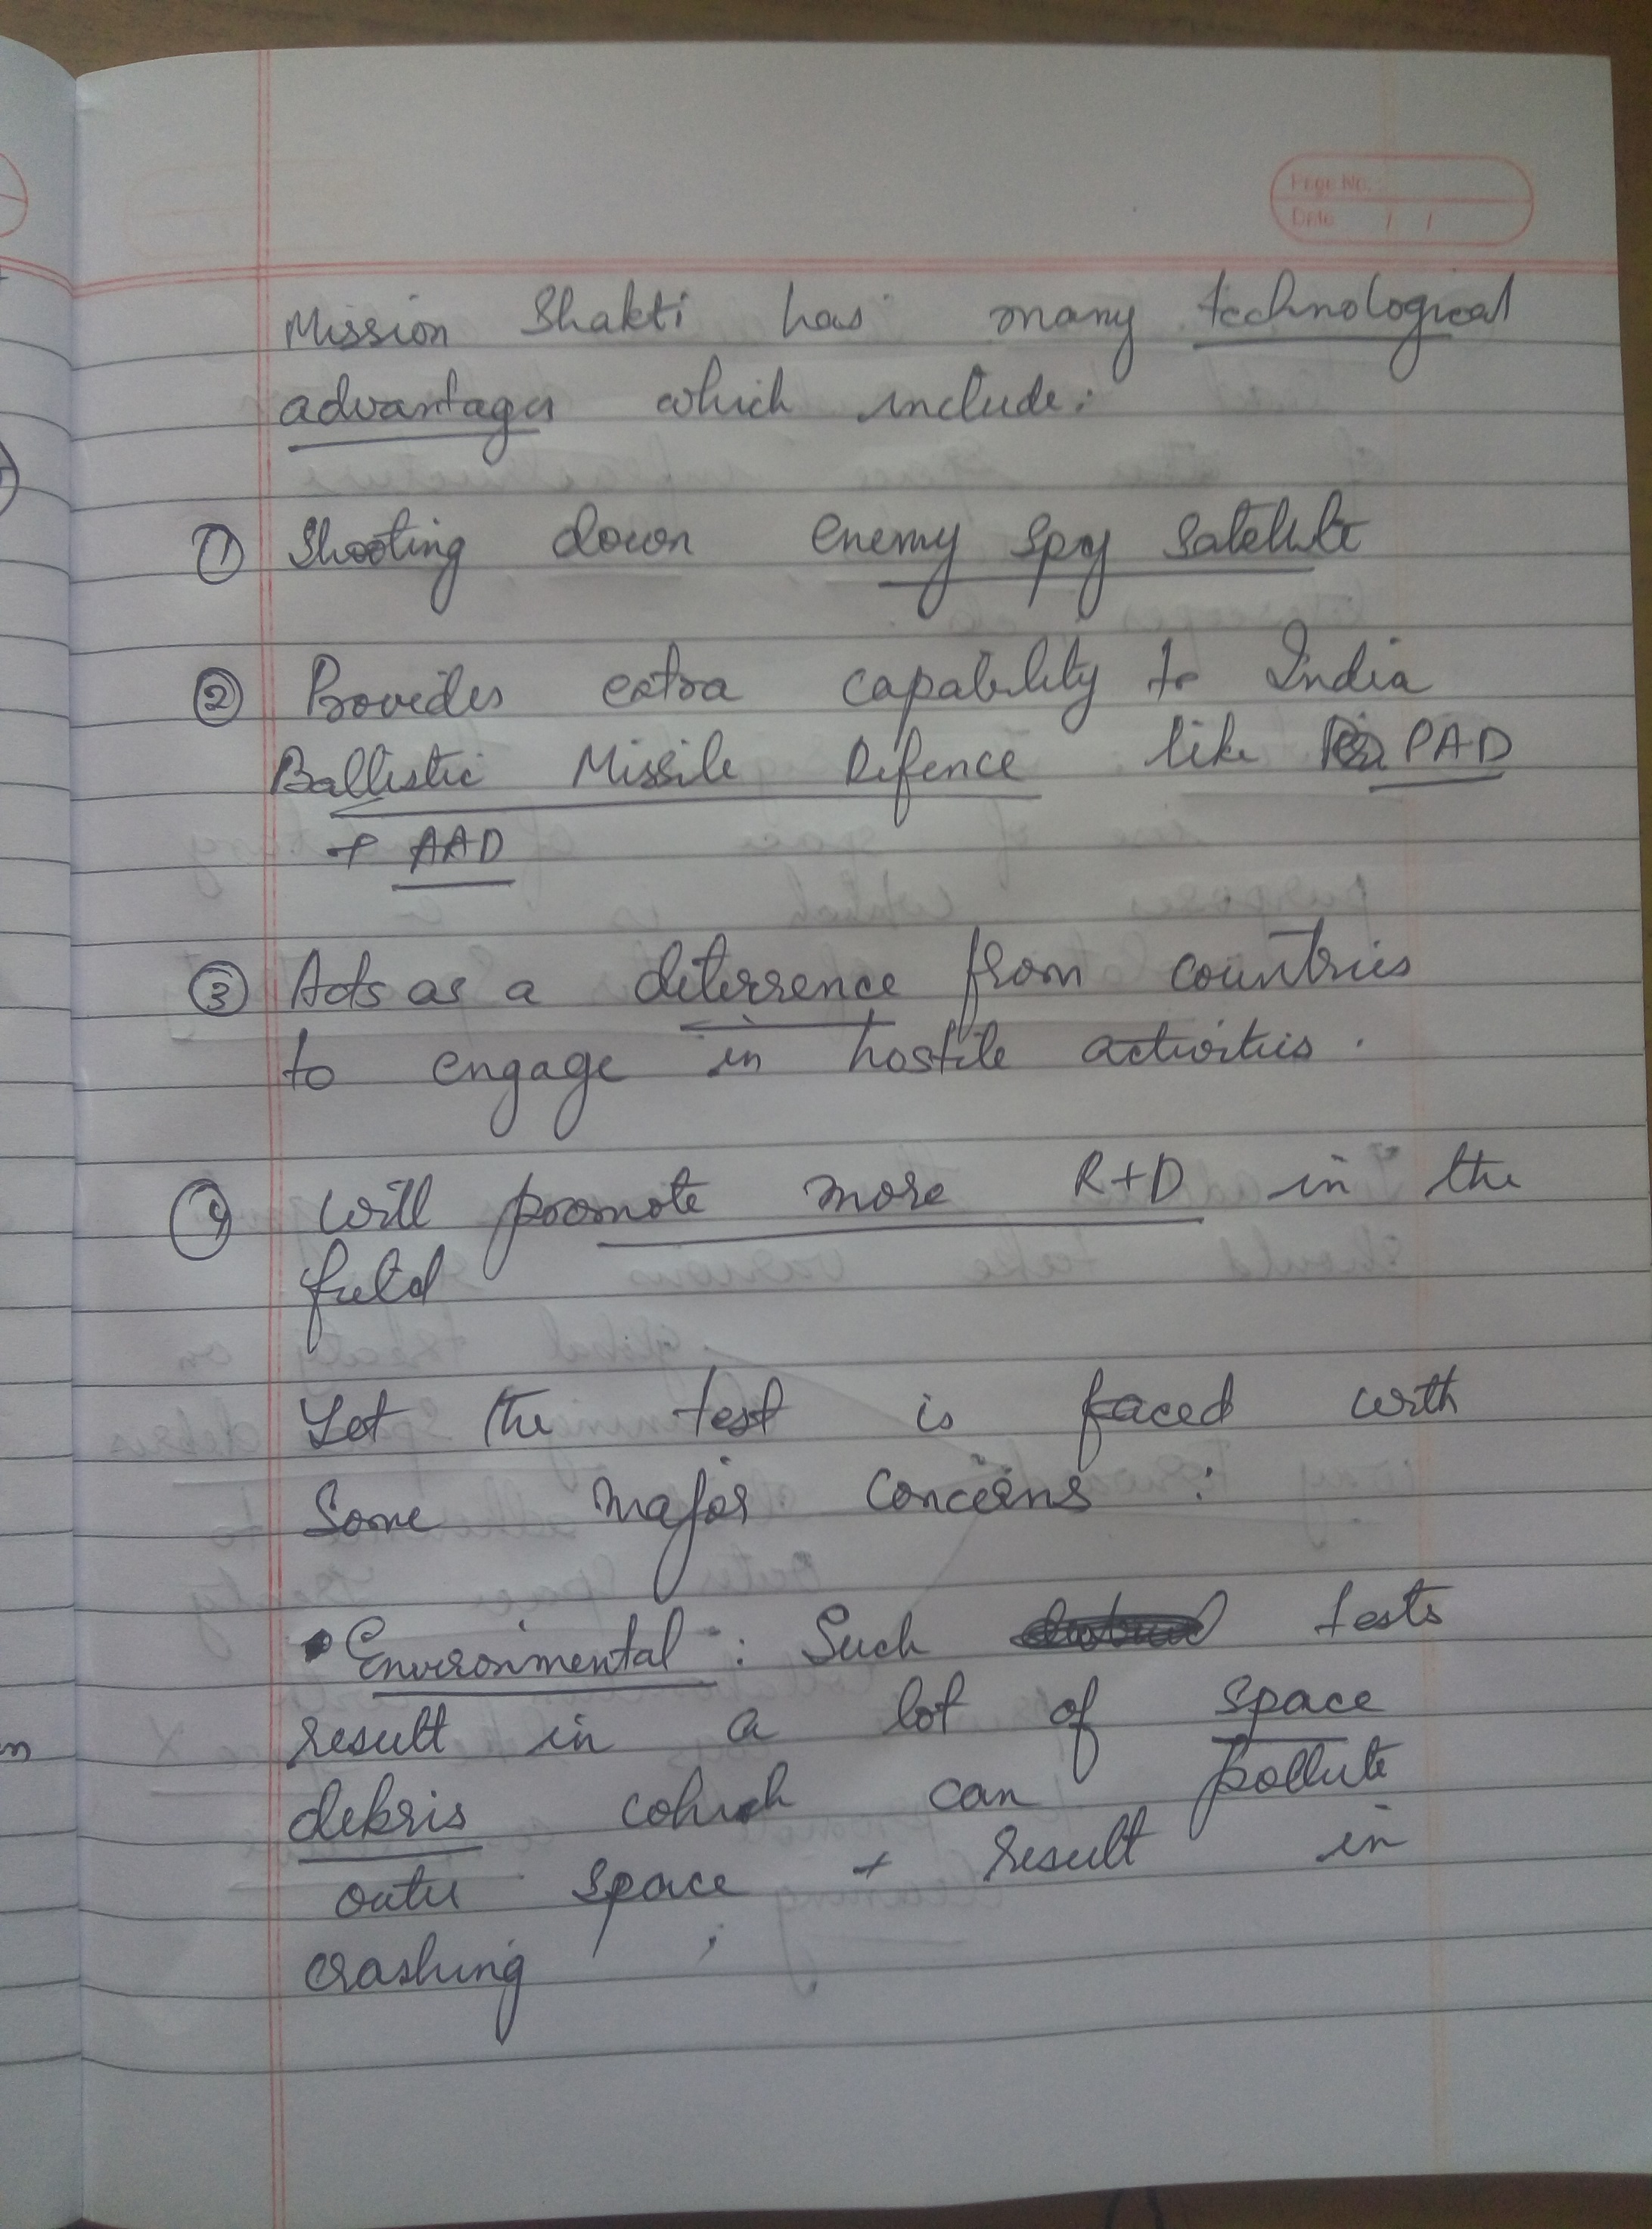 Page No.
Date / /
Mission Shakti has many technological
advantages which include:
① Shooting down enemy spy satellite
② Provides extra capability to India
Ballistic Missile Defence like PAD
+ AAD
③ Acts as a deterrence from countries
to engage in hostile activities.
④ Will promote more R+D in the
field
Yet the test is faced with
some major concerns:
• Environmental: Such tests
result in a lot of space
debris which can pollute
outer space + result in
crashing ;